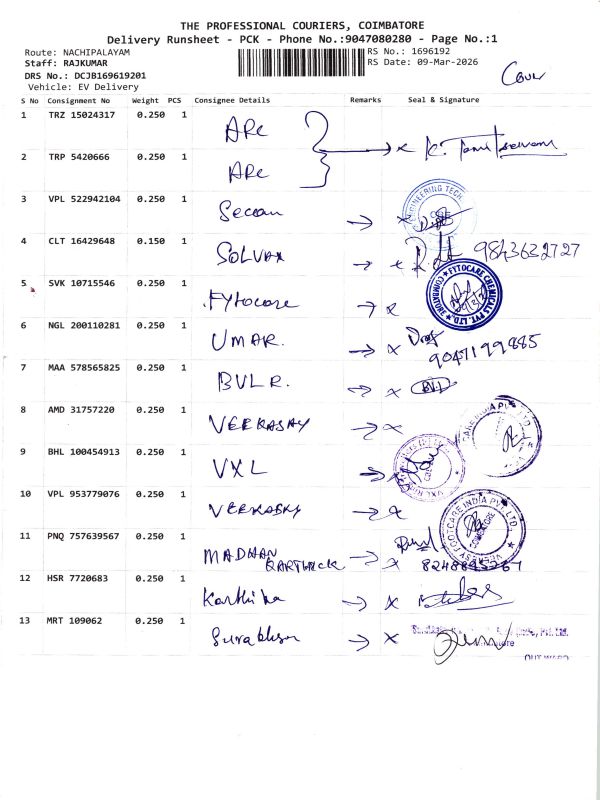 THE PROFESSIONAL COURIERS, COIMBATORE
Delivery Runsheet - PCK - Phone No.:9047080280 - Page No.:1
Route: NACHIPALAYAM RS No.: 1696192
Staff: RAJKUMAR RS Date: 09-Mar-2026
DRS No.: DCJB169619201
Vehicle: EV Delivery
S No Consignment No Weight PCS Consignee Details Remarks Seal & Signature
1 TRZ 15024317 0.250 1 ARC
2 TRP 5420666 0.250 1 ARC
3 VPL 522942104 0.250 1 ENGINEERING TECH
4 CLT 16429648 0.150 1 SOLVAX 9843632727
5 SVK 10715546 0.250 1 Fytocare FYTOCARE CHEMICALS PVT. LTD. COIMBATORE
6 NGL 200110281 0.250 1 UMAR. 9047199885
7 MAA 578565825 0.250 1 BVLR.
8 AMD 31757220 0.250 1 VERKASAY
9 BHL 100454913 0.250 1 VXL
10 VPL 953779076 0.250 1 VERKASAY FOOTCARE INDIA PVT. LTD.
11 PNQ 757639567 0.250 1 MADHAN KARTHICK
12 HSR 7720683 0.250 1 Karthika
13 MRT 109062 0.250 1